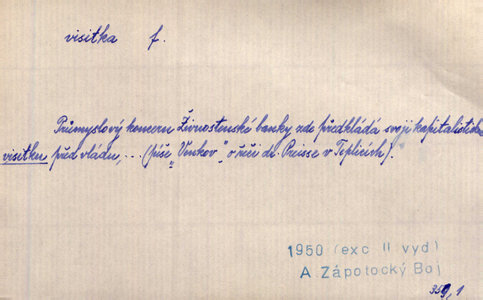 visitka f.
Průmyslový koncern Živnostenské banky zde předkládá svoji kapitalistickou
visitku před vládu,... (píše „Venkov" o řeči dr. Preisse v Teplicích)."
1950 (exc II vyd)
A Zápotocký Boj
359, 1